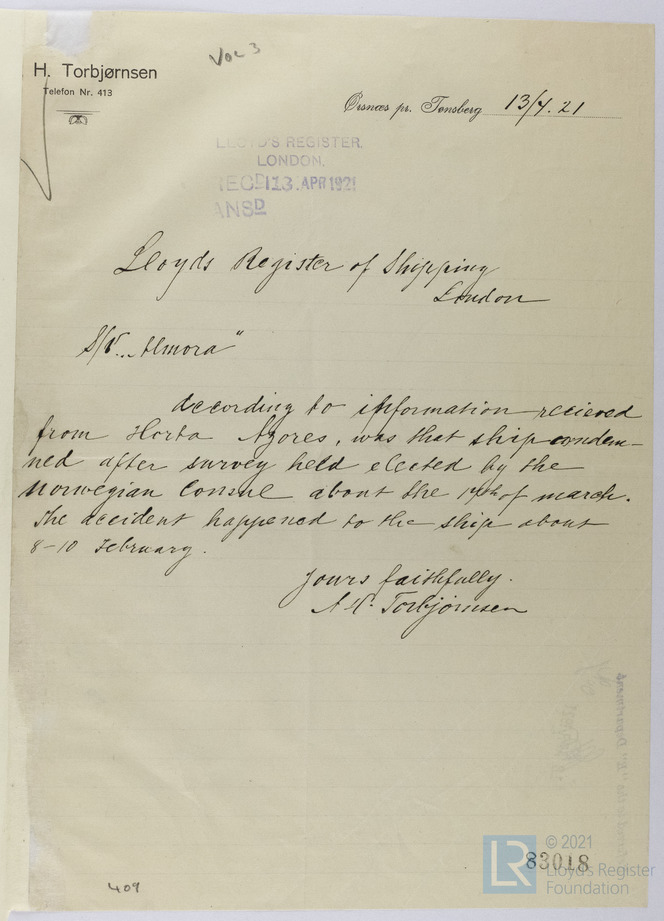 Vol 3
H. Torbjørnsen
Telefon Nr. 413
Ørsnæs pr. Tønsberg 13/4. 21
LLOYD'S REGISTER,
LONDON.
REC'D 13. APR 1921
ANSD
Lloyds Register of Shipping
London
S/V. „Almora"
According to information recieved
from Horta Azores, was that ship condem-
ned after survey held elected by the
Norwegian Consul about the 17th of march.
The accident happened to the ship about
8-10 February.
Yours faithfully.
A H. Torbjørnsen
83018
© 2021
Lloyd's Register
Foundation
409